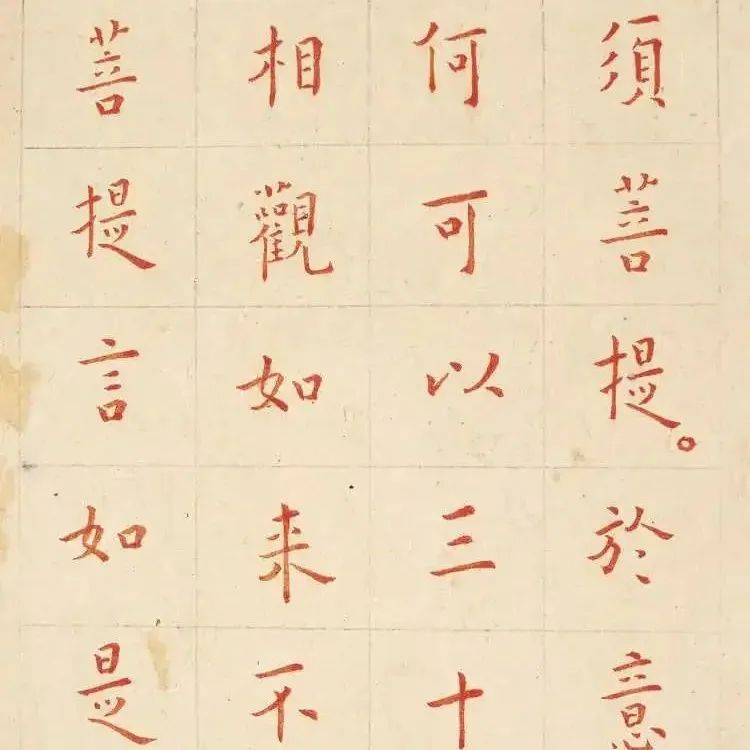 須菩提。於意
何可以三十
相觀如来不
菩提言如是